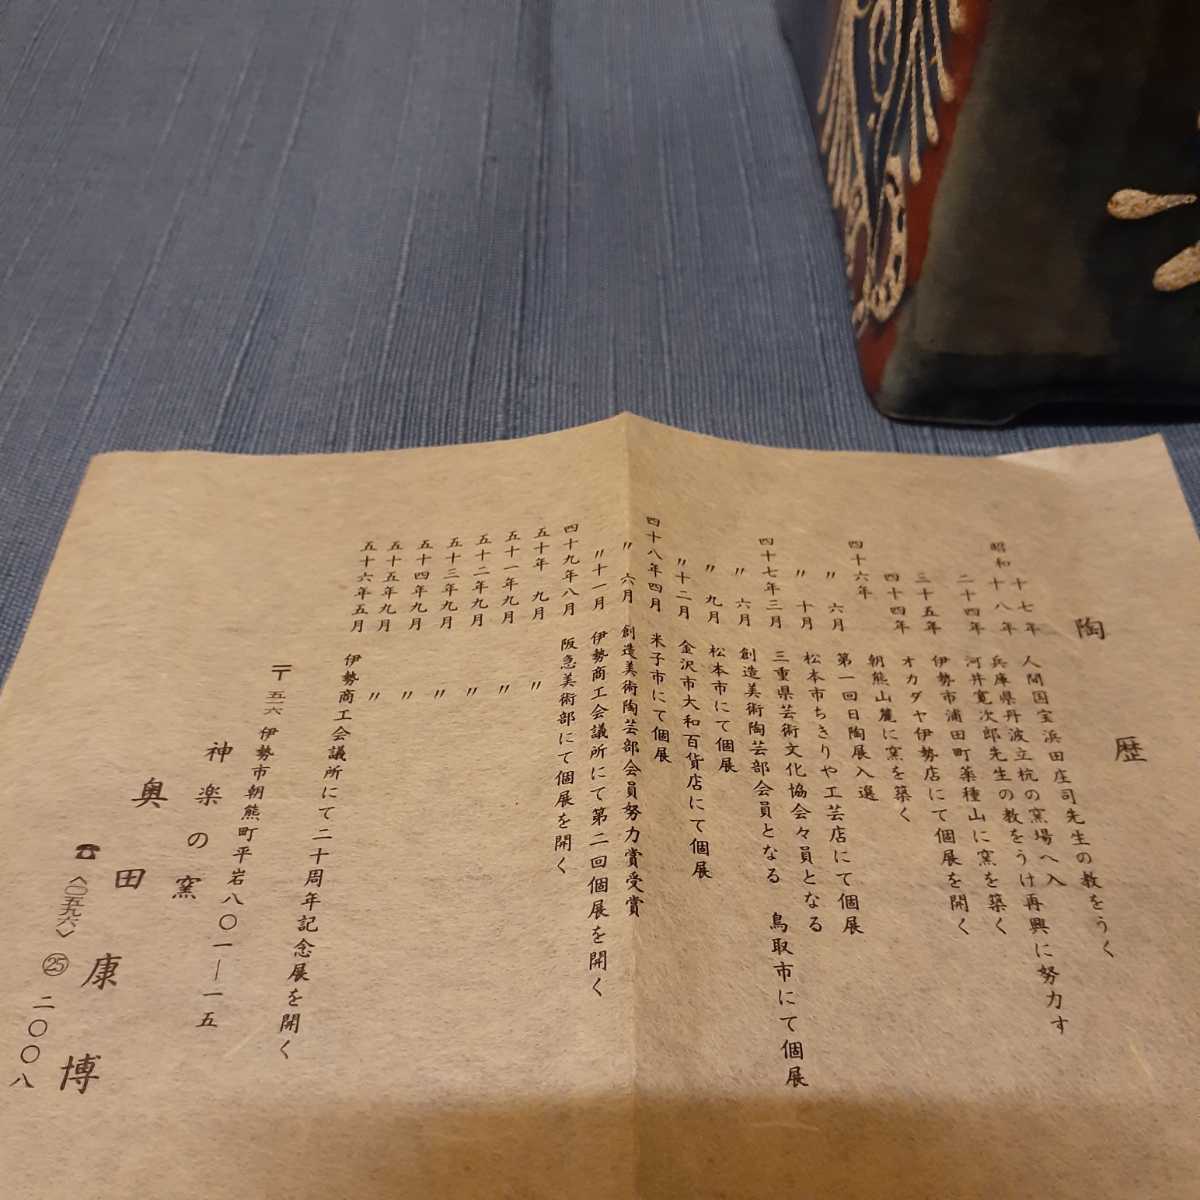 陶歴
昭和十七年 人間国宝浜田庄司先生の教をうく
十八年 兵庫県丹波立杭の窯場へ入り再興に努力す
二十四年 河井寛次郎先生の教をうけ
伊勢市浦田町薬種山に窯を築く
三十五年 オカダヤ伊勢店にて個展を開く
四十四年 朝熊山麓に窯を築く
四十六年 第一回日陶展入選
〃 六月 松本市ちきりや工芸店にて個展
〃 十月 三重県芸術文化協会々員となる
四十七年三月 創造美術陶芸部会員となる 鳥取市にて個展
〃 六月 松本市にて個展
〃 九月 金沢市大和百貨店にて個展
〃十二月 米子市にて個展
四十八年四月 創造美術陶芸部会員努力賞受賞
〃 六月 伊勢商工会議所にて第二回個展を開く
〃十一月 阪急美術部にて個展を開く
四十九年八月 〃
五十年 九月 〃
五十一年九月 〃
五十二年九月 〃
五十三年九月 〃
五十四年九月 〃
五十五年九月
五十六年五月 伊勢商工会議所にて二十周年記念展を開く
〒五一六 伊勢市朝熊町平岩八〇一―一五
神楽の窯
奥田康博
☎〈〇五九六〉㉕二〇〇八